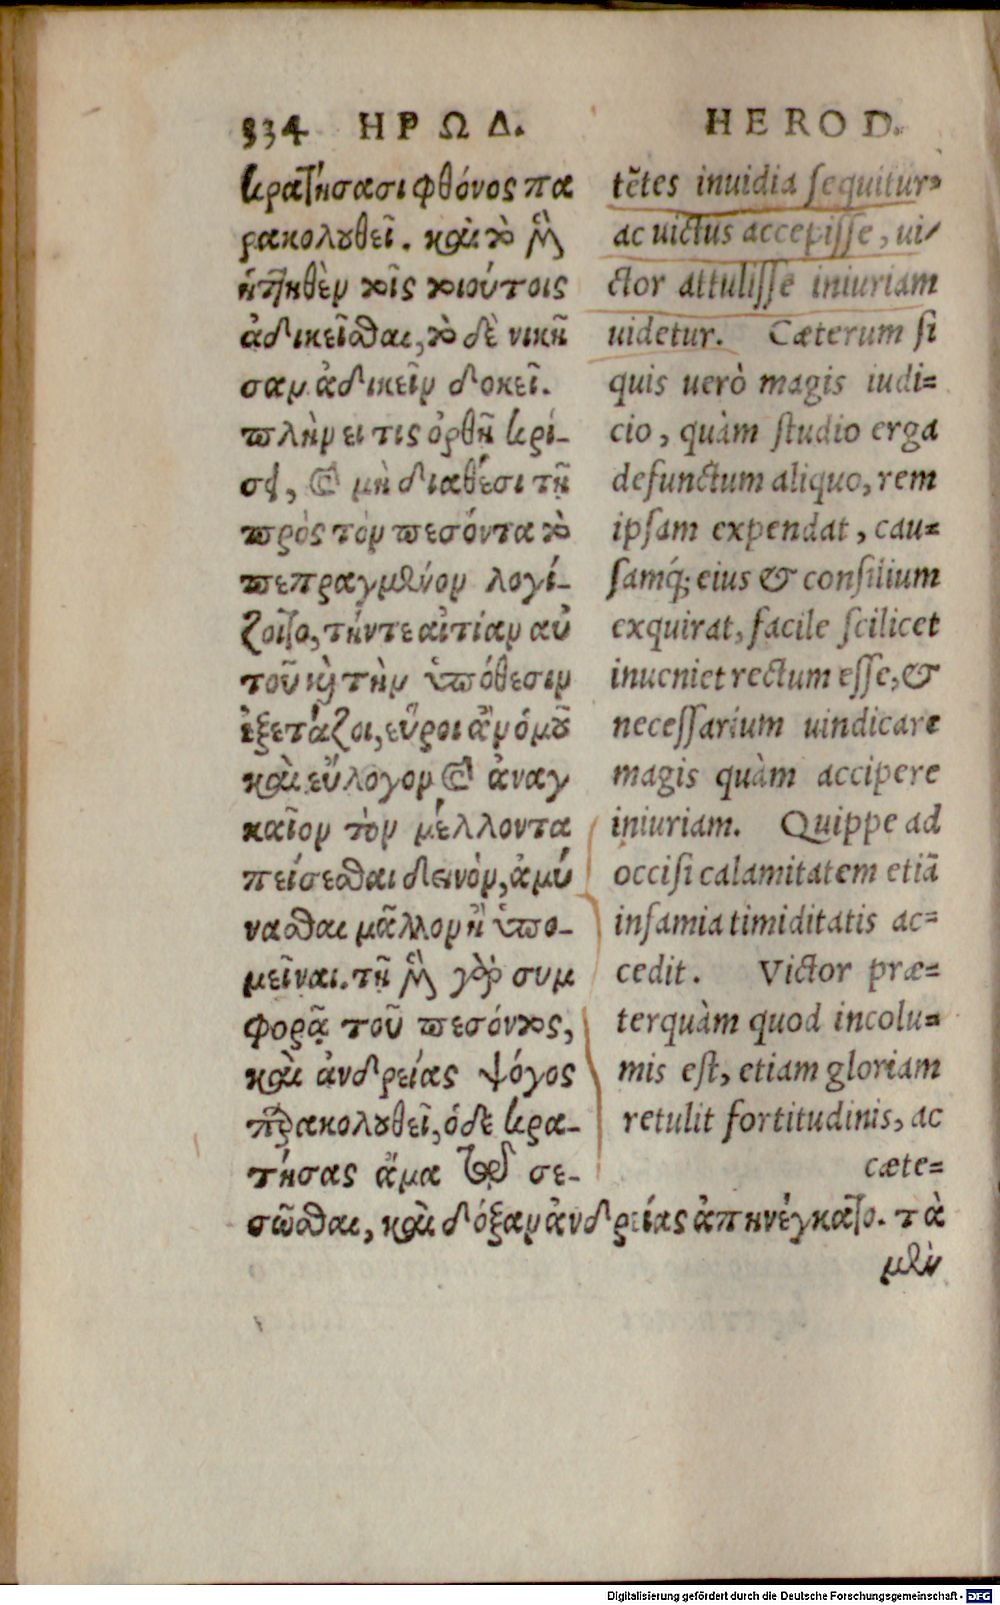 334 ΗΡΩΔ.
κρατήσασι φθόνος πα
ρακολουθεῖ. καὶ τὸ μὲν
ἡττηθὲν τοῖς τοιούτοις
ἀδικεῖσθαι, τὸ δὲ νικῆ
σαν ἀδικεῖν δοκεῖ.
πλὴν εἰ τις ὀρθῇ κρί-
σει, καὶ μὴ διαθέσει τῇ
πρὸς τὸν πεσόντα τὸ
πεπραγμένον λογί-
ζοιτο, τήντε αἰτίαν αὐ
τοῦ καὶ τὴν ὑπόθεσιν
ἐξετάζοι, εὕροι ἂν ὁμοῦ
καὶ εὔλογον καὶ ἀναγ
καῖον τὸν μέλλοντα
πείσεσθαι δεινὸν, ἀμύ
νασθαι μᾶλλον ἢ ὑπο-
μεῖναι. τῇ μὲν γὰρ συμ
φορᾷ τοῦ πεσόντος,
καὶ ἀνδρείας ψόγος
παρακολουθεῖ, ὁδὲ κρα-
τήσας ἅμα τῷ σε-
σῶσθαι, καὶ δόξαν ἀνδρείας ἀπηνέγκατο. τὰ
μὲν
HEROD.
tẽtes inuidia sequitur,
ac uictus accepisse, ui-
ctor attulisse iniuriam
uidetur. Cæterum si
quis uerò magis iudi=
cio, quàm studio erga
defunctum aliquo, rem
ipsam expendat, cau=
samq́; eius & consilium
exquirat, facile scilicet
inueniet rectum esse, &
necessarium uindicare
magis quàm accipere
iniuriam. Quippe ad
occisi calamitatem etiã
infamia timiditatis ac=
cedit. Victor præ=
terquàm quod incolu=
mis est, etiam gloriam
retulit fortitudinis, ac
cæte=
Digitalisierung gefördert durch die Deutsche Forschungsgemeinschaft - DFG